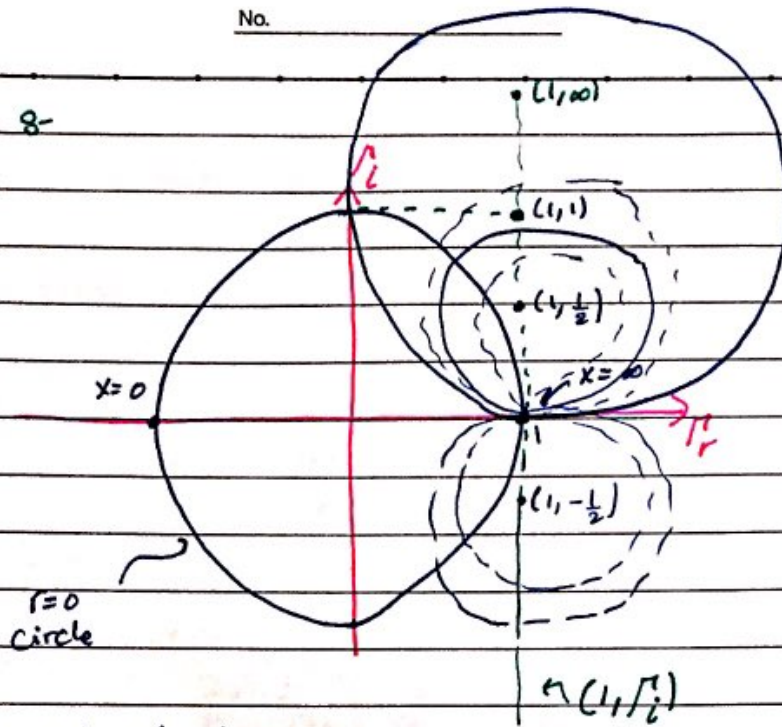 No.
8-
(1,∞)
Γi
(1,1)
(1,½)
x=0
x=∞
1
Γr
(1,-½)
r=0
circle
(1,Γi)